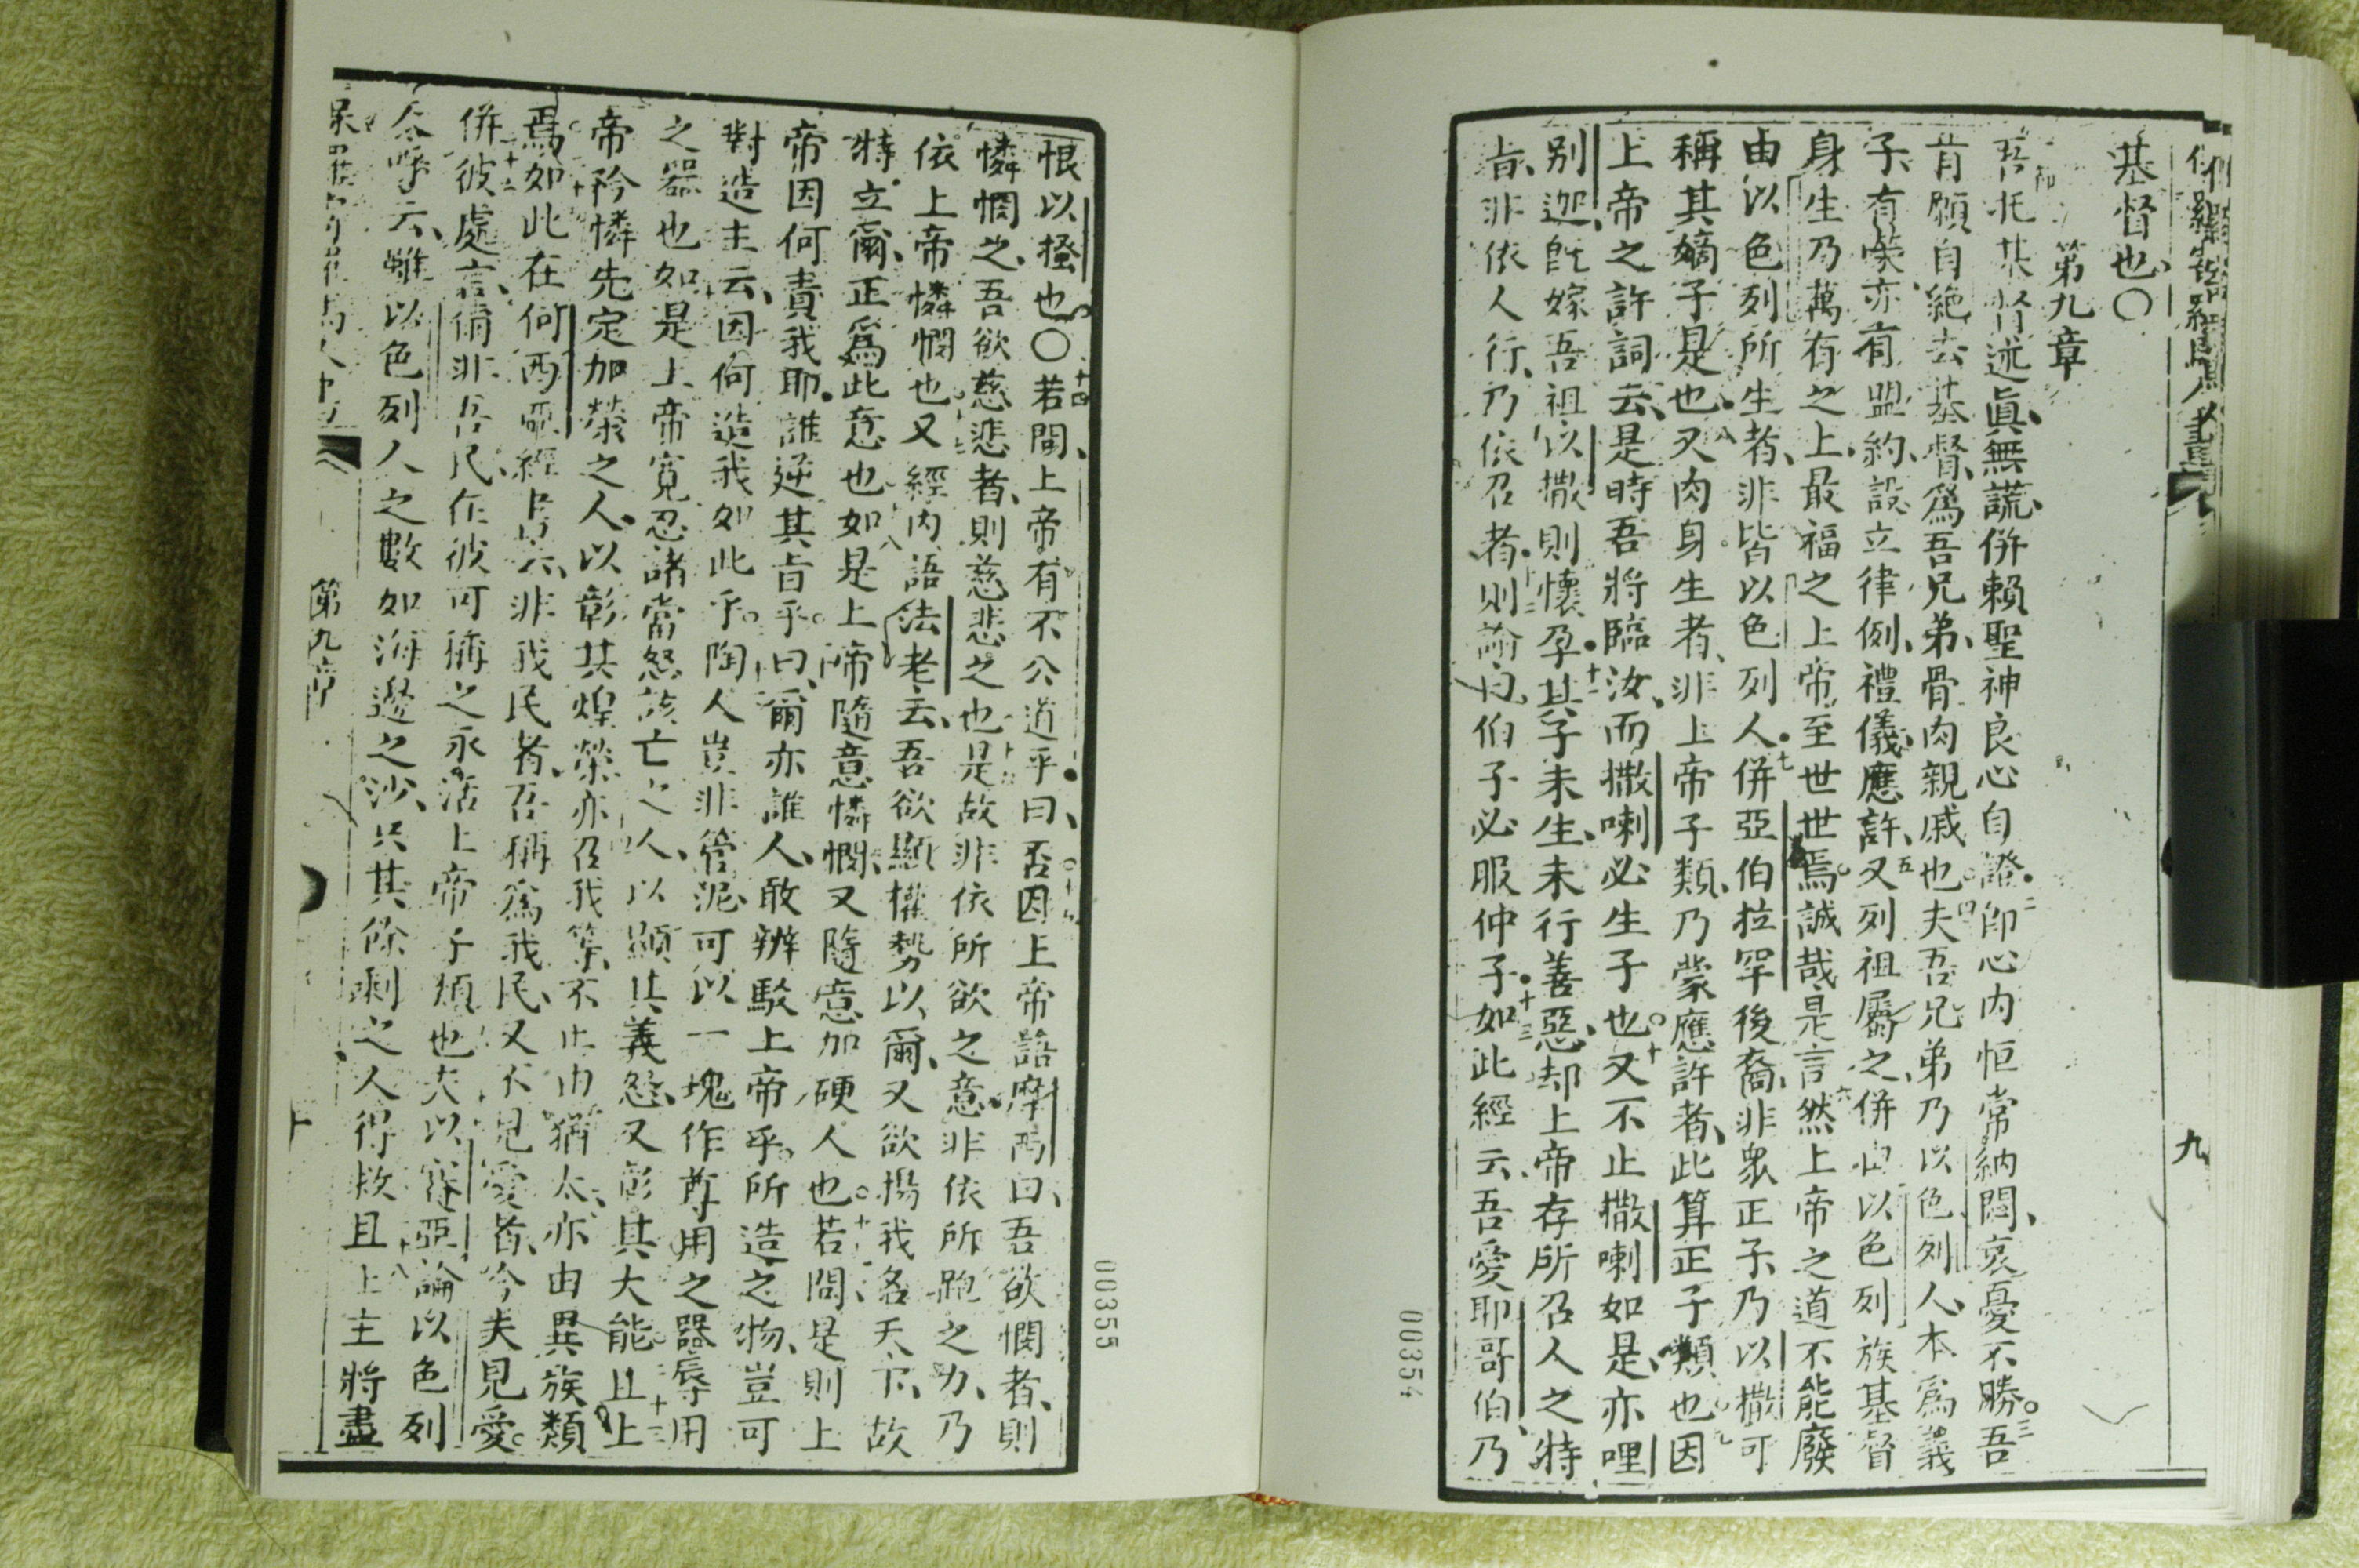 基督也、〇
第九章
吾托基督述眞、無謊、併賴聖神良心自證、二卽心内恒常納悶、哀憂不勝。三吾
肯願自絶去基督、爲吾兄弟、骨肉親戚也。四夫吾兄弟乃以色列人、本爲義
子、有榮、亦有盟約、設立律例、禮儀、應許、五又列祖屬之、併由以色列族基督
身生、乃萬有之上、最福之上帝、至世世焉。誠哉是言、六然上帝之道不能廢
由以色列所生者、非皆以色列人。七併亞伯拉罕後裔、非眾正子、乃以撒可
稱其嫡子是也。八又肉身生者、非上帝子類、乃蒙應許者、此算正子類也。九因
上帝之許詞云、是時吾將臨汝、而撒喇必生子也。十又不止撒喇如是、亦哩
别迦旣嫁吾祖以撒、則懷孕。十一其子未生、未行善惡、却上帝存所召人之特
旨、非依人行、乃依召者。十二則諭曰、伯子必服仲子。十三如此經云、吾愛耶哥伯、乃
九
00354
恨以掻也。〇十四若問、上帝有不公道乎。曰、否。十五因上帝語摩西曰、吾欲憫者、則
憐憫之、吾欲慈悲者、則慈悲之也。十六是故非依所欲之意、非依所跑之力、乃
依上帝憐憫也。十七又經内語法老云、吾欲顯權勢以爾、又欲揚我名天下、故
特立爾、正爲此意也。十八如是上帝隨意憐憫、又隨意加硬人也。十九若問、是則上
帝因何責我耶。誰逆其旨乎。二十曰、爾亦誰人、敢辦駁上帝乎。所造之物、豈可
對造主云、因何造我如此乎。陶人豈非管泥、可以一塊作尊用之器、辱用
之器也。如是上帝寬忍諸當怒該亡之人、以顯其義怒、又彰其大能。二十三且上
帝矜憐先定加榮之人、以彰其煌榮、亦召我等、不止由猶太、亦由異族類
焉。如此在何西亞經書云、非我民者、吾稱爲我民、又不見愛者、今夫見愛。
併彼處言、爾非吾民、在彼可稱之永活上帝子類也。夫以賽亞論以色列
人呼云、雖以色列人之數如海邊之沙、只其餘剩之人得救、且上主將盡
第九章
00355